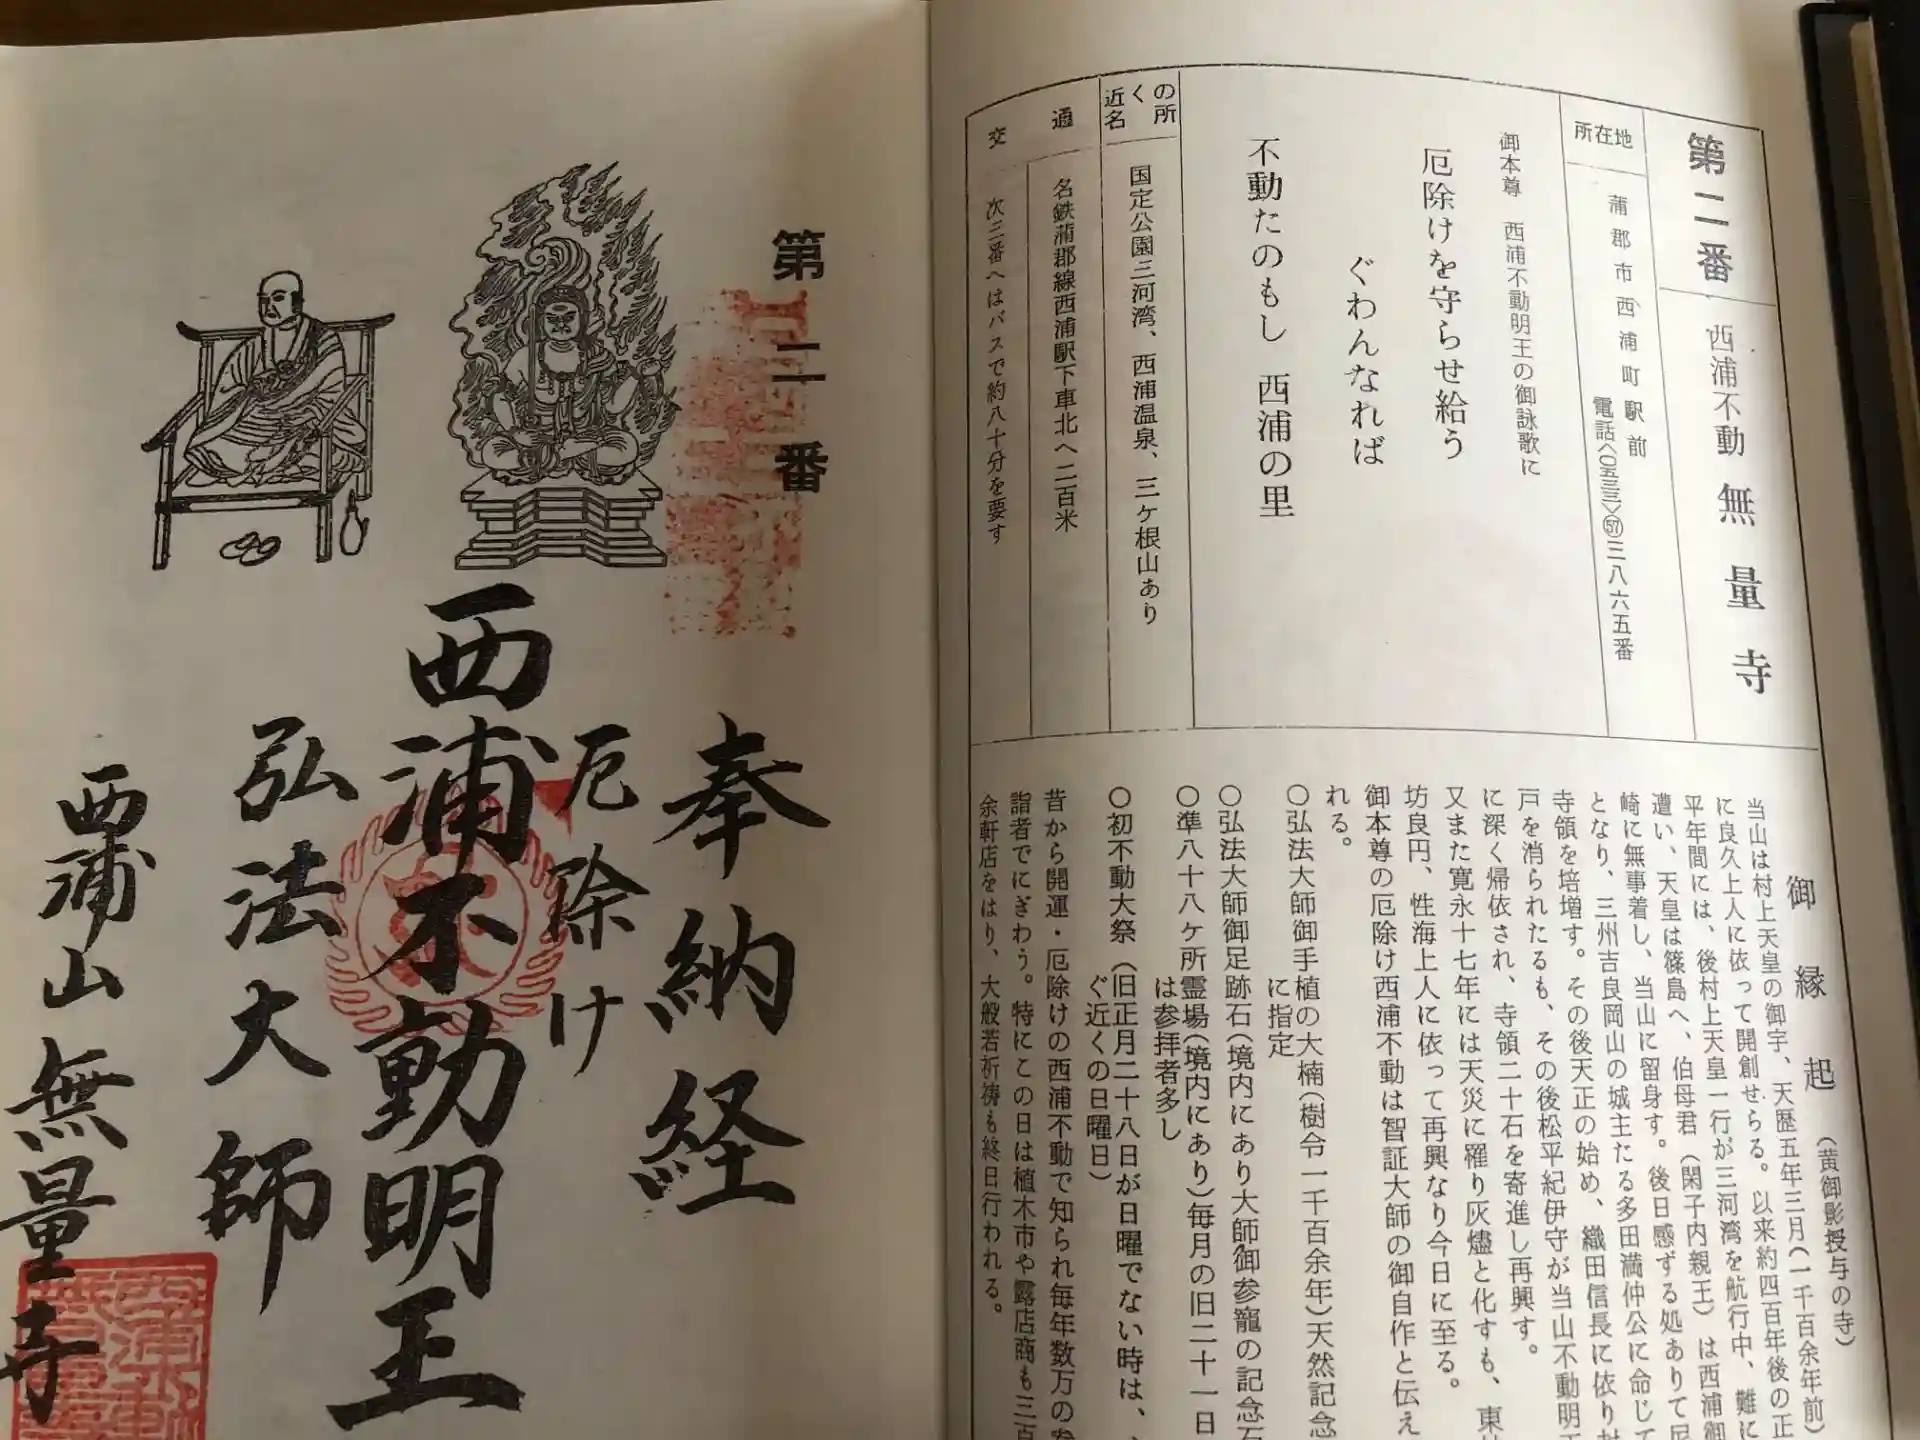 第二番
西浦不動 無量寺
所在地
蒲郡市西浦町駅前
電話〈〇五三三〉㊼三八六五番
御本尊 西浦不動明王の御詠歌に
厄除けを守らせ給う
ぐわんなれば
不動たのもし 西浦の里
近くの名所
国定公園三河湾、西浦温泉、三ケ根山あり
交通
名鉄蒲郡線西浦駅下車北へ二百米
次三番へはバスで約八十分を要す
御縁起
(黄御影授与の寺)
当山は村上天皇の御宇、天歴五年三月(一千百余年前)
に良久上人に依って開創せらる。以来約四百年後の正
平年間には、後村上天皇一行が三河湾を航行中、難に
遭い、天皇は篠島へ、伯母君(閑子内親王)は西浦御
崎に無事着し、当山に留身す。後日感ずる処ありて尼
となり、三州吉良岡山の城主たる多田満仲公に命じて
寺領を培増す。その後天正の始め、織田信長に依り
戸を消られたるも、その後松平紀伊守が当山不動明王
に深く帰依され、寺領二十石を寄進し再興す。
又また寛永十七年には天災に罹り灰燼と化すも、東
坊良円、性海上人に依って再興なり今日に至る。
御本尊の厄除け西浦不動は智証大師の御自作と伝え
れる。
〇弘法大師御手植の大楠(樹令一千百余年)天然記念
に指定
〇弘法大師御足跡石(境内にあり大師御参籠の記念石
〇準八十八ケ所霊場(境内にあり)毎月の旧二十一日
は参拝者多し
〇初不動大祭(旧正月二十八日が日曜でない時は、
ぐ近くの日曜日)
昔から開運・厄除けの西浦不動で知られ毎年数万の参
詣者でにぎわう。特にこの日は植木市や露店商も三百
余軒店をはり、大般若祈祷も終日行われる。
第二番
奉納経
厄除け
西浦不動明王
弘法大師
西浦山無量寺